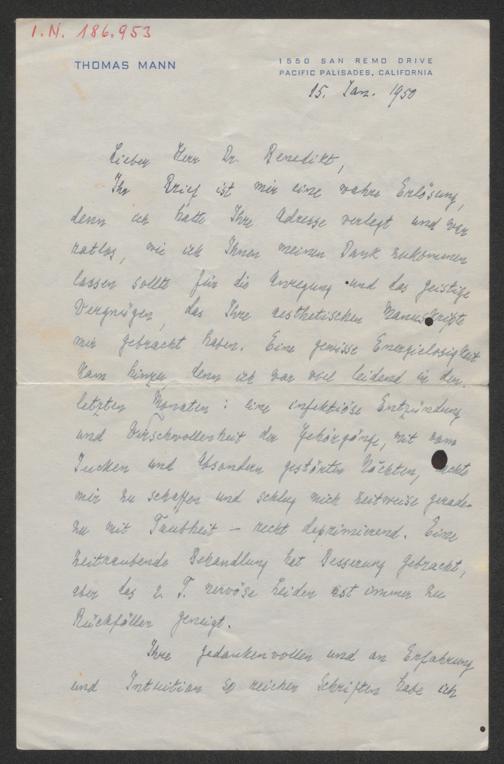 I.N. 186.953
THOMAS MANN
1550 SAN REMO DRIVE
PACIFIC PALISADES, CALIFORNIA
15. Jan. 1950
Lieber Herr Dr. Benedikt,
Ihr Brief ist mir eine wahre Erlösung,
denn ich hatte Ihre Adresse verlegt und war
ratlos, wie ich Ihnen meinen Dank zukommen
lassen sollte für die Anregung und das geistige
Vergnügen, das Ihre aesthetischen Manuskripte
mir gebracht haben. Eine gewisse Energielosigkeit
kam hinzu, denn ich war viel leidend in den
letzten Monaten: eine infektiöse Entzündung
und Verschwollenheit der Gehörgänge, mit vom
Jucken und Absondern gestörten Nächten, machte
mir zu schaffen und schlug mich zeitweise gerade-
zu mit Taubheit – recht deprimierend. Eine
zeitraubende Behandlung hat Besserung gebracht,
aber das z. T. nervöse Leiden ist immer zu
Rückfällen geneigt.
Ihre gedankenvollen und an Erfahrung
und Intuition so reichen Schriften habe ich